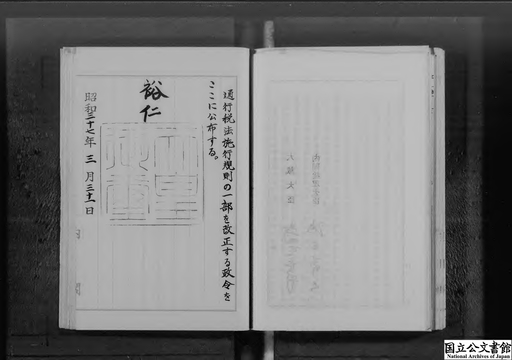 通行税法施行規則の一部を改正する政令を
ここに公布する。
裕仁
天皇御璽
昭和三十七年三月三十一日
内閣
国立公文書館
National Archives of Japan